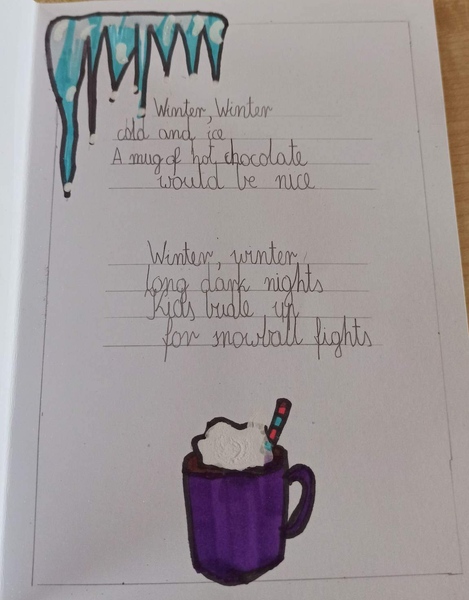 Winter, Winter
cold and ice
A mug of hot chocolate
would be nice
Winter, winter
long dark nights
Kids budle up
for snowball fights